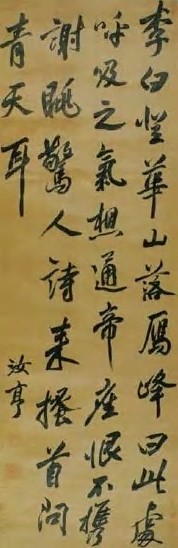 李白登華山落鴈峰曰此處
呼吸之氣想通帝座恨不攜
謝眺驚人詩来搔首問
青天耳
汝亨